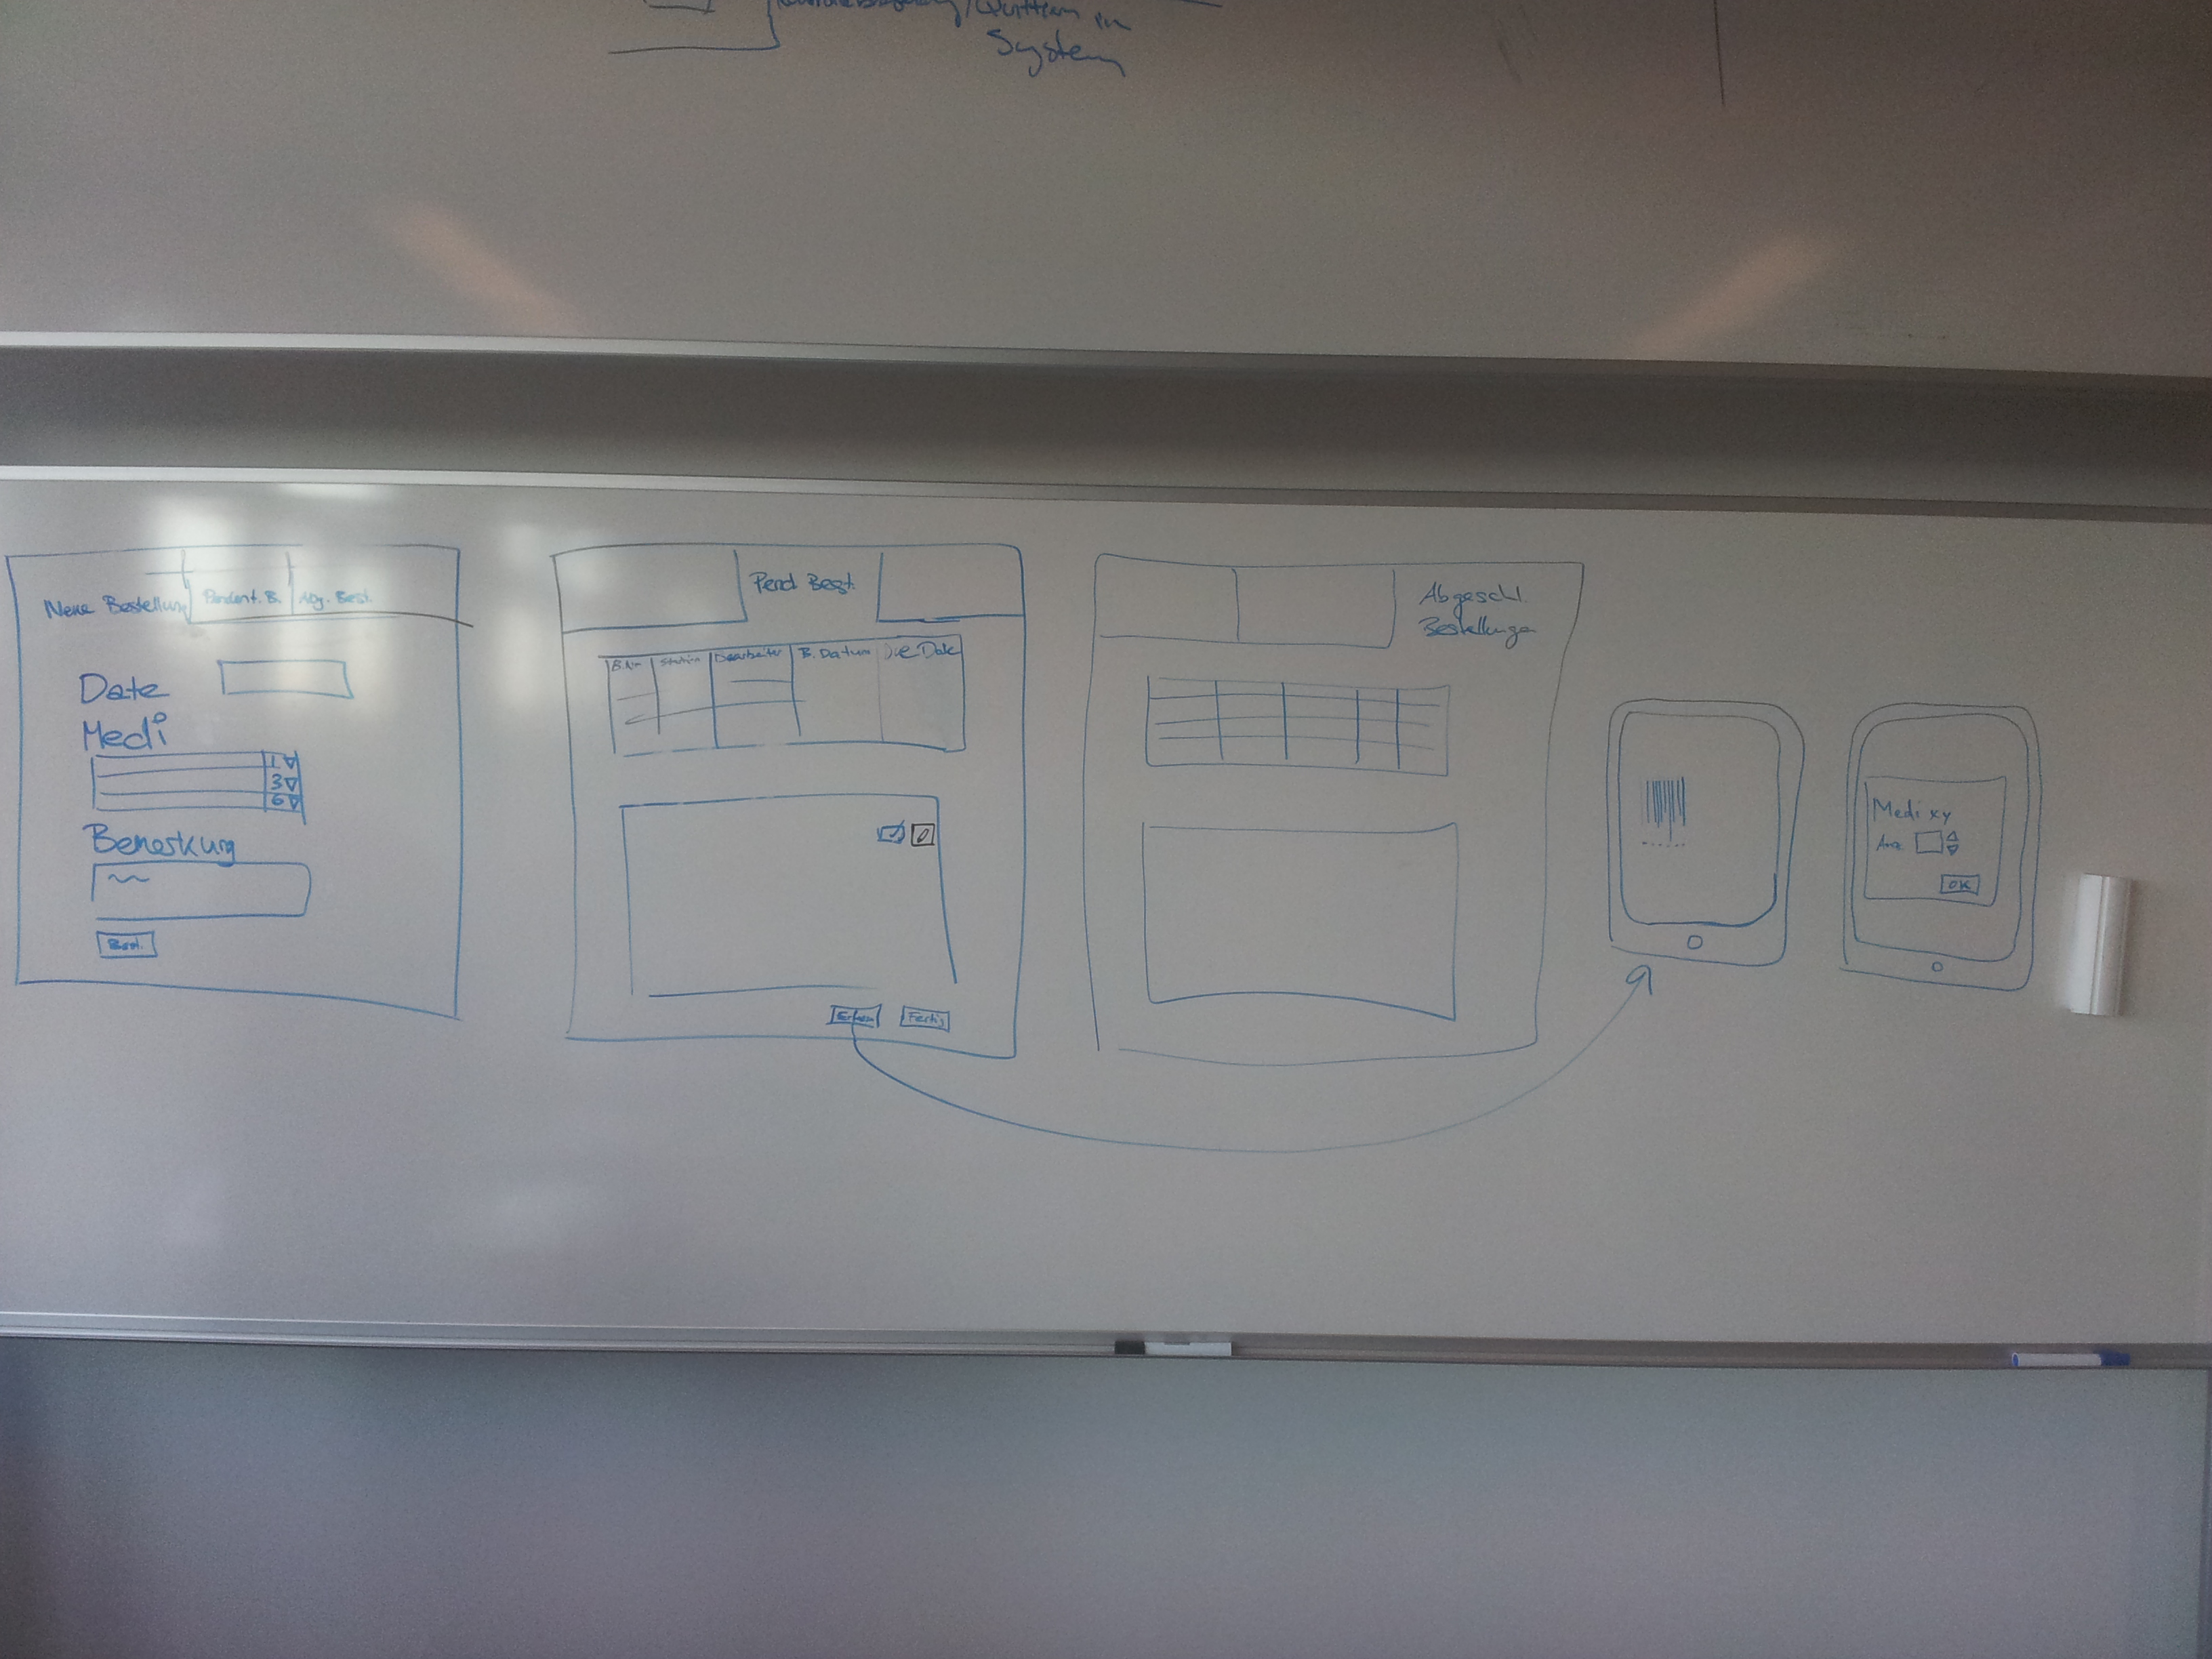 /Quittieren in
System
Neue Bestellung
Pendent. B.
Abg. Best.
Date
Medi
1
3
6
Bemerkung
Best.
Pend Best.
B.Nr
Station
Bearbeiter
B. Datum
Due Date
Fertig
Abgeschl.
Bestellungen
Medi xy
Anz
OK